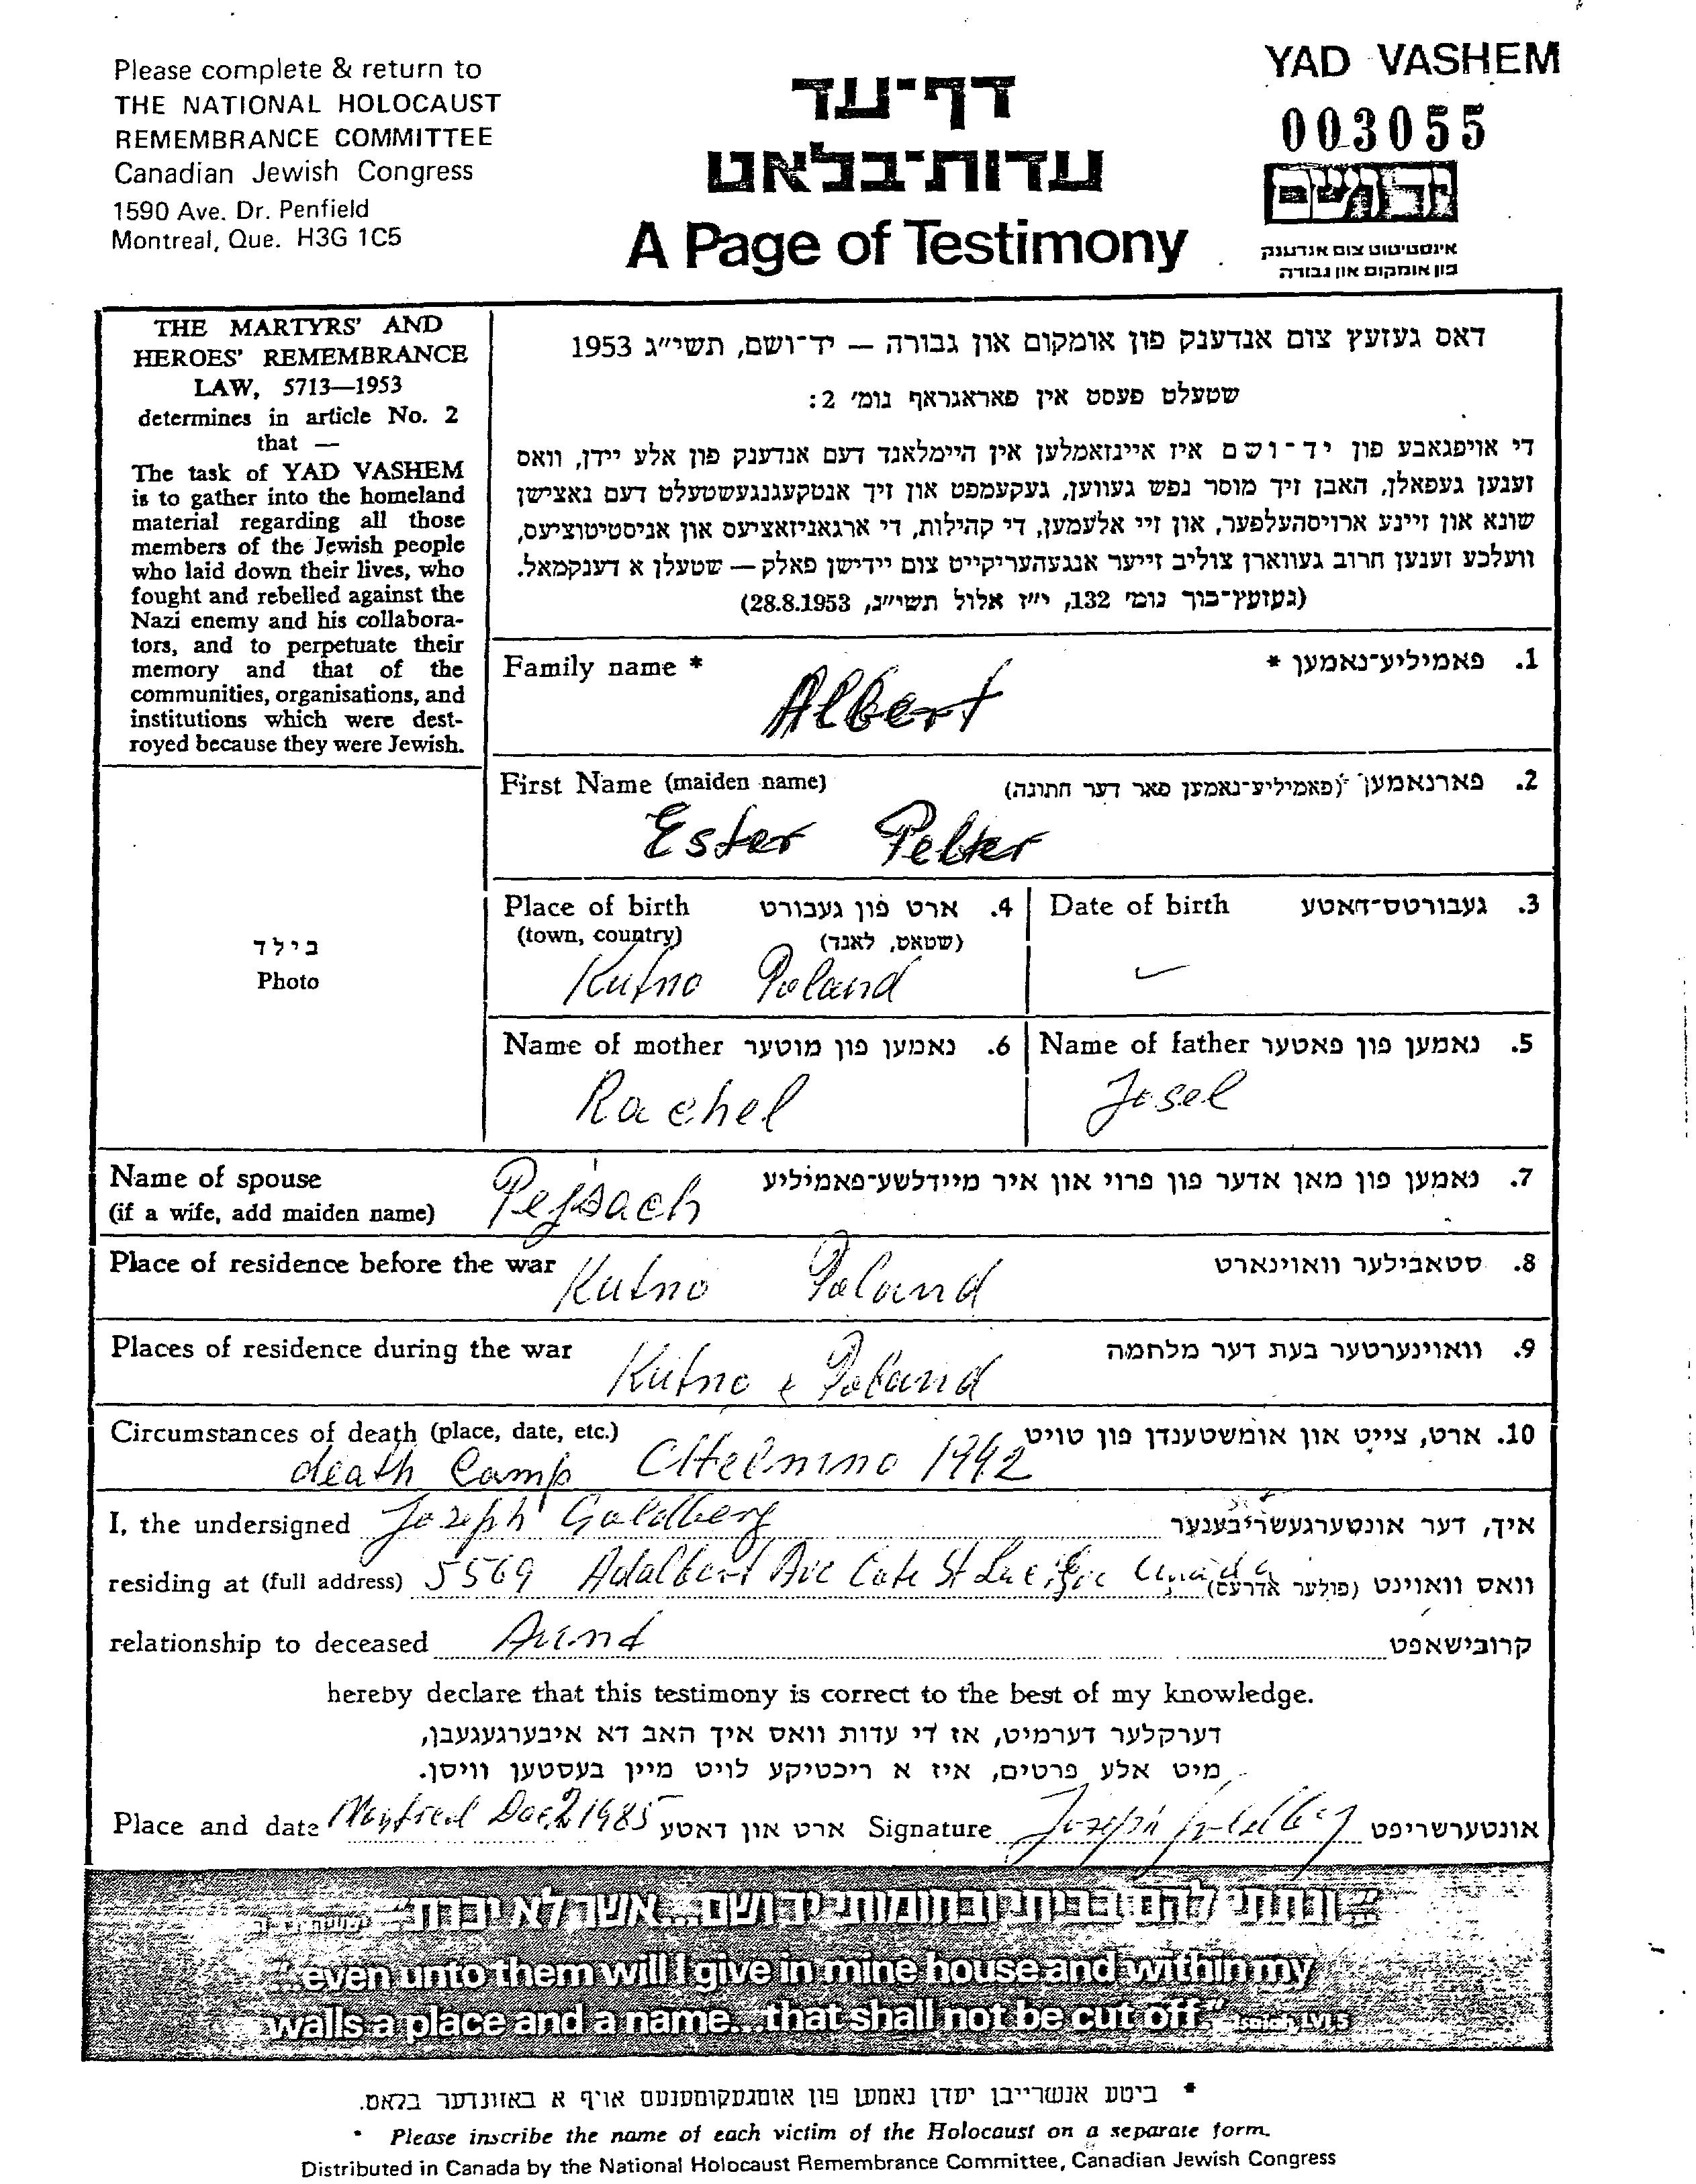 Please complete & return to
THE NATIONAL HOLOCAUST
REMEMBRANCE COMMITTEE
Canadian Jewish Congress
1590 Ave. Dr. Penfield
Montreal, Que. H3G 1C5
דף־עד
עדות־בלאט
A Page of Testimony
YAD VASHEM
003055
אינסטיטוט צום אנדענק
פון אומקום און גבורה
THE MARTYRS' AND
HEROES' REMEMBRANCE
LAW, 5713—1953
determines in article No. 2
that —
The task of YAD VASHEM
is to gather into the homeland
material regarding all those
members of the Jewish people
who laid down their lives, who
fought and rebelled against the
Nazi enemy and his collabora-
tors, and to perpetuate their
memory and that of the
communities, organisations, and
institutions which were dest-
royed because they were Jewish.
דאס געזעץ צום אנדענק פון אומקום און גבורה — יד־ושם, תשי״ג 1953
שטעלט פעסט אין פאראגראף נומ׳ 2:
די אויפגאבע פון יד־ושם איז איינזאמלען אין היימלאנד דעם אנדענק פון אלע יידן, וואס
זענען געפאלן, האבן זיך מוסר נפש געווען, געקעמפט און זיך אנטקעגנגעשטעלט דעם נאצישן
שונא און זיינע ארויסהעלפער, און זיי אלעמען, די קהילות, די ארגאניזאציעס און אניסטיטוציעס,
וועלכע זענען חרוב געווארן צוליב זייער אנגעהעריקייט צום יידישן פאלק — שטעלן א דענקמאל.
(געזעץ־בוך נומ׳ 132, י״ז אלול תשי״ג, 28.8.1953)
Family name * פאמיליע־נאמען * .1
Albert
First Name (maiden name) פארנאמען (פאמיליע־נאמען פאר דער חתונה) .2
Ester Pelter
Place of birth ארט פון געבורט .4
(town, country) (שטאט, לאנד)
Kutno Poland
Date of birth געבורטס־דאטע .3
Name of mother נאמען פון מוטער .6
Rachel
Name of father נאמען פון פאטער .5
Josel
בילד
Photo
Name of spouse Pejsach נאמען פון מאן אדער פון פרוי און איר מיידלשע־פאמיליע .7
(if a wife, add maiden name)
Place of residence before the war Kutno Poland סטאבילער וואוינארט .8
Places of residence during the war Kutno Poland וואוינערטער בעת דער מלחמה .9
Circumstances of death (place, date, etc.) ארט, צייט און אומשטענדן פון טויט .10
death Camp CHelmno 1942
I, the undersigned Joseph Goldberg איך, דער אונטערגעשריבענער
residing at (full address) 5569 Adalbert Ave Cote St Luc Canada וואס וואוינט (פולער אדרעס)
relationship to deceased קרובישאפט
hereby declare that this testimony is correct to the best of my knowledge.
דערקלער דערמיט, אז די עדות וואס איך האב דא איבערגעגעבן,
מיט אלע פרטים, איז א ריכטיקע לויט מיין בעסטען וויסן.
Place and date Dec 2 1985 ארט און דאטע Signature Joseph Goldberg אונטערשריפט
״ונתתי להם בביתי ובחומותי יד ושם...אשר לא יכרת״
"...even unto them will I give in mine house and within my
walls a place and a name...that shall not be cut off." Isaiah, LVI, 5
* ביטע אנשרייבן יעדן נאמען פון אומגעקומענעם אויף א באזונדער בלאט.
* Please inscribe the name of each victim of the Holocaust on a separate form.
Distributed in Canada by the National Holocaust Remembrance Committee, Canadian Jewish Congress